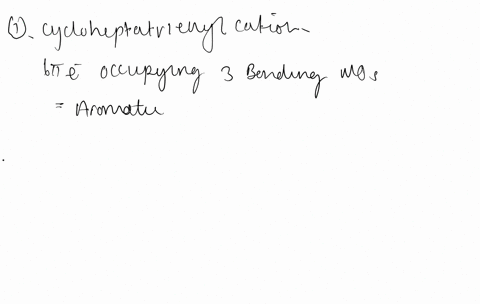 ①. cycloheptatrienyl cation.
6πē occupying 3 Bonding MOs
= Aromatic